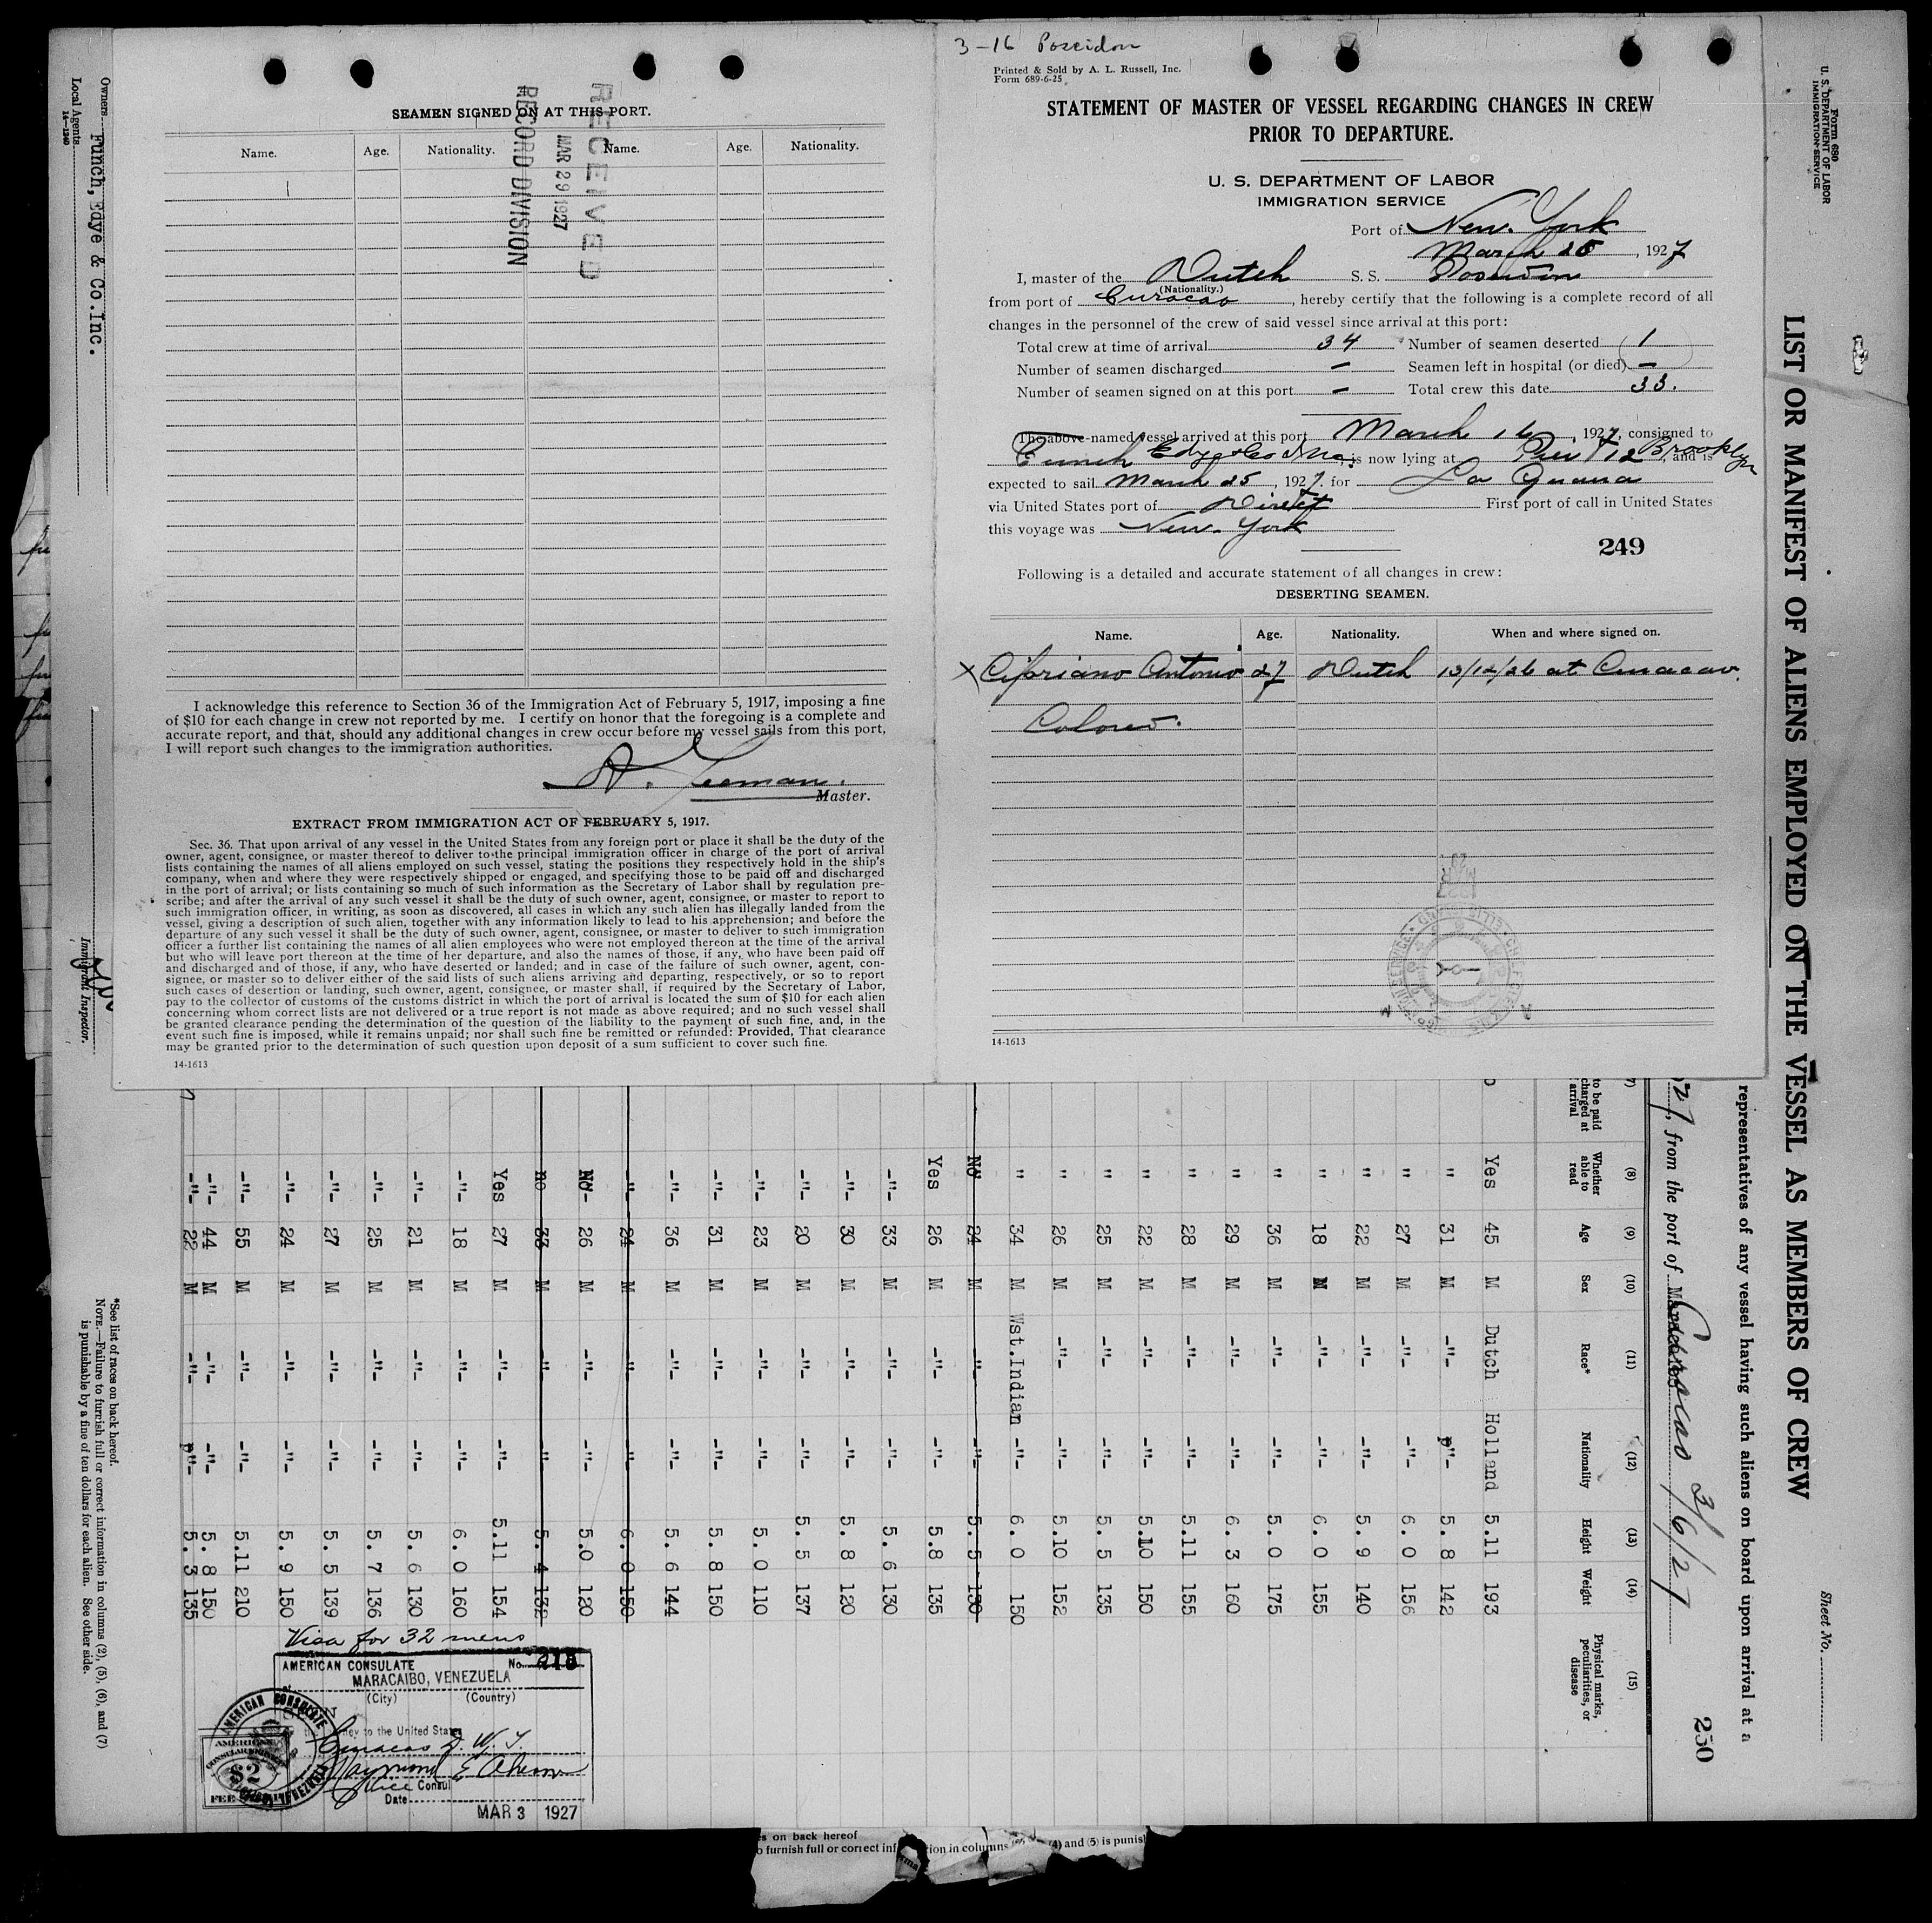 SEAMEN SIGNED ON AT THIS PORT.
Name. Age. Nationality. Name. Age. Nationality.
RECEIVED
MAR 29 1927
RECORD DIVISION
I acknowledge this reference to Section 36 of the Immigration Act of February 5, 1917, imposing a fine
of $10 for each change in crew not reported by me. I certify on honor that the foregoing is a complete and
accurate report, and that, should any additional changes in crew occur before my vessel sails from this port,
I will report such changes to the immigration authorities.
Master.
EXTRACT FROM IMMIGRATION ACT OF FEBRUARY 5, 1917.
Sec. 36. That upon arrival of any vessel in the United States from any foreign port or place it shall be the duty of the
owner, agent, consignee, or master thereof to deliver to the principal immigration officer in charge of the port of arrival
lists containing the names of all aliens employed on such vessel, stating the positions they respectively hold in the ship's
company, when and where they were respectively shipped or engaged, and specifying those to be paid off and discharged
in the port of arrival; or lists containing so much of such information as the Secretary of Labor shall by regulation pre-
scribe; and after the arrival of any such vessel it shall be the duty of such owner, agent, consignee, or master to report to
such immigration officer, in writing, as soon as discovered, all cases in which any such alien has illegally landed from the
vessel, giving a description of such alien, together with any information likely to lead to his apprehension; and before the
departure of any such vessel it shall be the duty of such owner, agent, consignee, or master to deliver to such immigration
officer a further list containing the names of all alien employees who were not employed thereon at the time of the arrival
but who will leave port thereon at the time of her departure, and also the names of those, if any, who have been paid off
and discharged and of those, if any, who have deserted or landed; and in case of the failure of such owner, agent, con-
signee, or master so to deliver either of the said lists of such aliens arriving and departing, respectively, or so to report
such cases of desertion or landing, such owner, agent, consignee, or master shall, if required by the Secretary of Labor,
pay to the collector of customs of the customs district in which the port of arrival is located the sum of $10 for each alien
concerning whom correct lists are not delivered or a true report is not made as above required; and no such vessel shall
be granted clearance pending the determination of the question of the liability to the payment of such fine, and, in the
event such fine is imposed, while it remains unpaid; nor shall such fine be remitted or refunded: Provided, That clearance
may be granted prior to the determination of such question upon deposit of a sum sufficient to cover such fine.
14-1613
3-16 Poseidon
Printed & Sold by A. L. Russell, Inc.
Form 689-6-25
STATEMENT OF MASTER OF VESSEL REGARDING CHANGES IN CREW
PRIOR TO DEPARTURE.
U. S. DEPARTMENT OF LABOR
IMMIGRATION SERVICE
Port of New York
March 25, 1927
I, master of the Dutch S. S. Poseidon
(Nationality.)
from port of Curacao, hereby certify that the following is a complete record of all
changes in the personnel of the crew of said vessel since arrival at this port:
Total crew at time of arrival 34 Number of seamen deserted 1
Number of seamen discharged – Seamen left in hospital (or died) –
Number of seamen signed on at this port – Total crew this date 33.
The above-named vessel arrived at this port March 16, 1927, consigned to
Funch Edye & Co Inc., is now lying at Pier 12 Brooklyn, and is
expected to sail March 25, 1927, for La Guaira
via United States port of Direct First port of call in United States
this voyage was New York
249
Following is a detailed and accurate statement of all changes in crew:
DESERTING SEAMEN.
Name. Age. Nationality. When and where signed on.
X Cipriano Antonio 27 Dutch 13/12/26 at Curacao.
Colored.
14-1613
Form 680
U. S. DEPARTMENT OF LABOR
IMMIGRATION SERVICE
LIST OR MANIFEST OF ALIENS EMPLOYED ON THE VESSEL AS MEMBERS OF CREW
Sheet No.
250
representatives of any vessel having such aliens on board upon arrival at a
27, from the port of Curacao 3/6/27
to be paid charged at arrival
(8) Whether able to read
(9) Age
(10) Sex
(11) Race*
(12) Nationality
(13) Height
(14) Weight
(15) Physical marks, peculiarities, or disease
Yes 45 M Dutch Holland 5.11 193
" 31 M -"- -"- 5. 8 142
" 27 M -"- -"- 6. 0 156
" 22 M -"- -"- 5. 9 140
" 18 M -"- -"- 6. 0 155
" 36 M -"- -"- 5. 0 175
" 29 M -"- -"- 6. 3 160
" 28 M -"- -"- 5.11 155
" 22 M -"- -"- 5.10 150
" 25 M -"- -"- 5. 5 135
" 26 M -"- -"- 5.10 152
" 34 M Wst.Indian -"- 6. 0 150
No 24 M -"- -"- 5.5 130
Yes 26 M -"- -"- 5.8 135
-"- 33 M -"- -"- 5. 6 130
-"- 30 M -"- -"- 5. 8 120
-"- 20 M -"- -"- 5. 5 137
-"- 23 M -"- -"- 5. 0 110
-"- 31 M -"- -"- 5. 8 150
-"- 36 M -"- -"- 5. 6 144
-"- 24 M -"- -"- 6. 0 150
No- 26 M -"- -"- 5.0 120
no 33 M -"- -"- 5. 4 132
Yes 27 M -"- -"- 5.11 154
-"- 18 M -"- -"- 6. 0 160
-"- 21 M -"- -"- 5. 6 130
-"- 25 M -"- -"- 5. 7 136
-"- 27 M -"- -"- 5. 5 139
-"- 24 M -"- -"- 5. 9 150
-"- 55 M -"- -"- 5.11 210
-"- 44 M -"- -"- 5. 8 150
-"- 22 M -"- -"- 5. 3 135
Visa for 32 mens
AMERICAN CONSULATE No. 218
MARACAIBO, VENEZUELA
(City) (Country)
to the United States
Curacao D. W. I.
Raymond E Ahearn
Vice Consul
Date
MAR 3 1927
AMERICAN CONSULATE
AMERICAN
$2
FEE
Owners
Local Agents Funch, Edye & Co.Inc.
14-1240
Immigrant Inspector.
*See list of races on back hereof.
NOTE.—Failure to furnish full or correct information in columns (2), (5), (6), and (7)
is punishable by a fine of ten dollars for each alien. See other side.
on back hereof
furnish full or correct
ion in columns (4) and (5) is punish